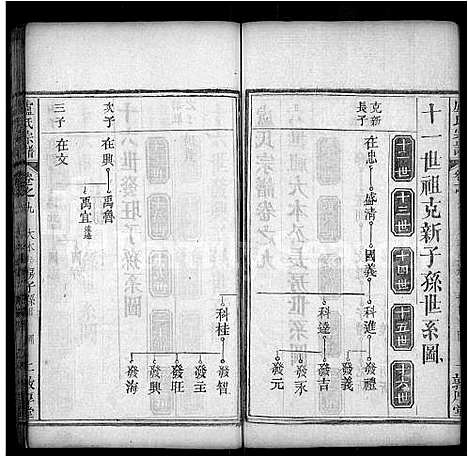 十一世祖克新子孫世系圖
十二世
十三世
十四世
十五世
十六世
克新
長子
在忠
盛清
國義
科進
發禮
發義
科達
發吉
發永
發元
科桂
發智
發主
發旺
發興
發海
次子
在興
禹魯
禹宜
三子
在文
盧氏宗譜
卷之九
敦厚堂